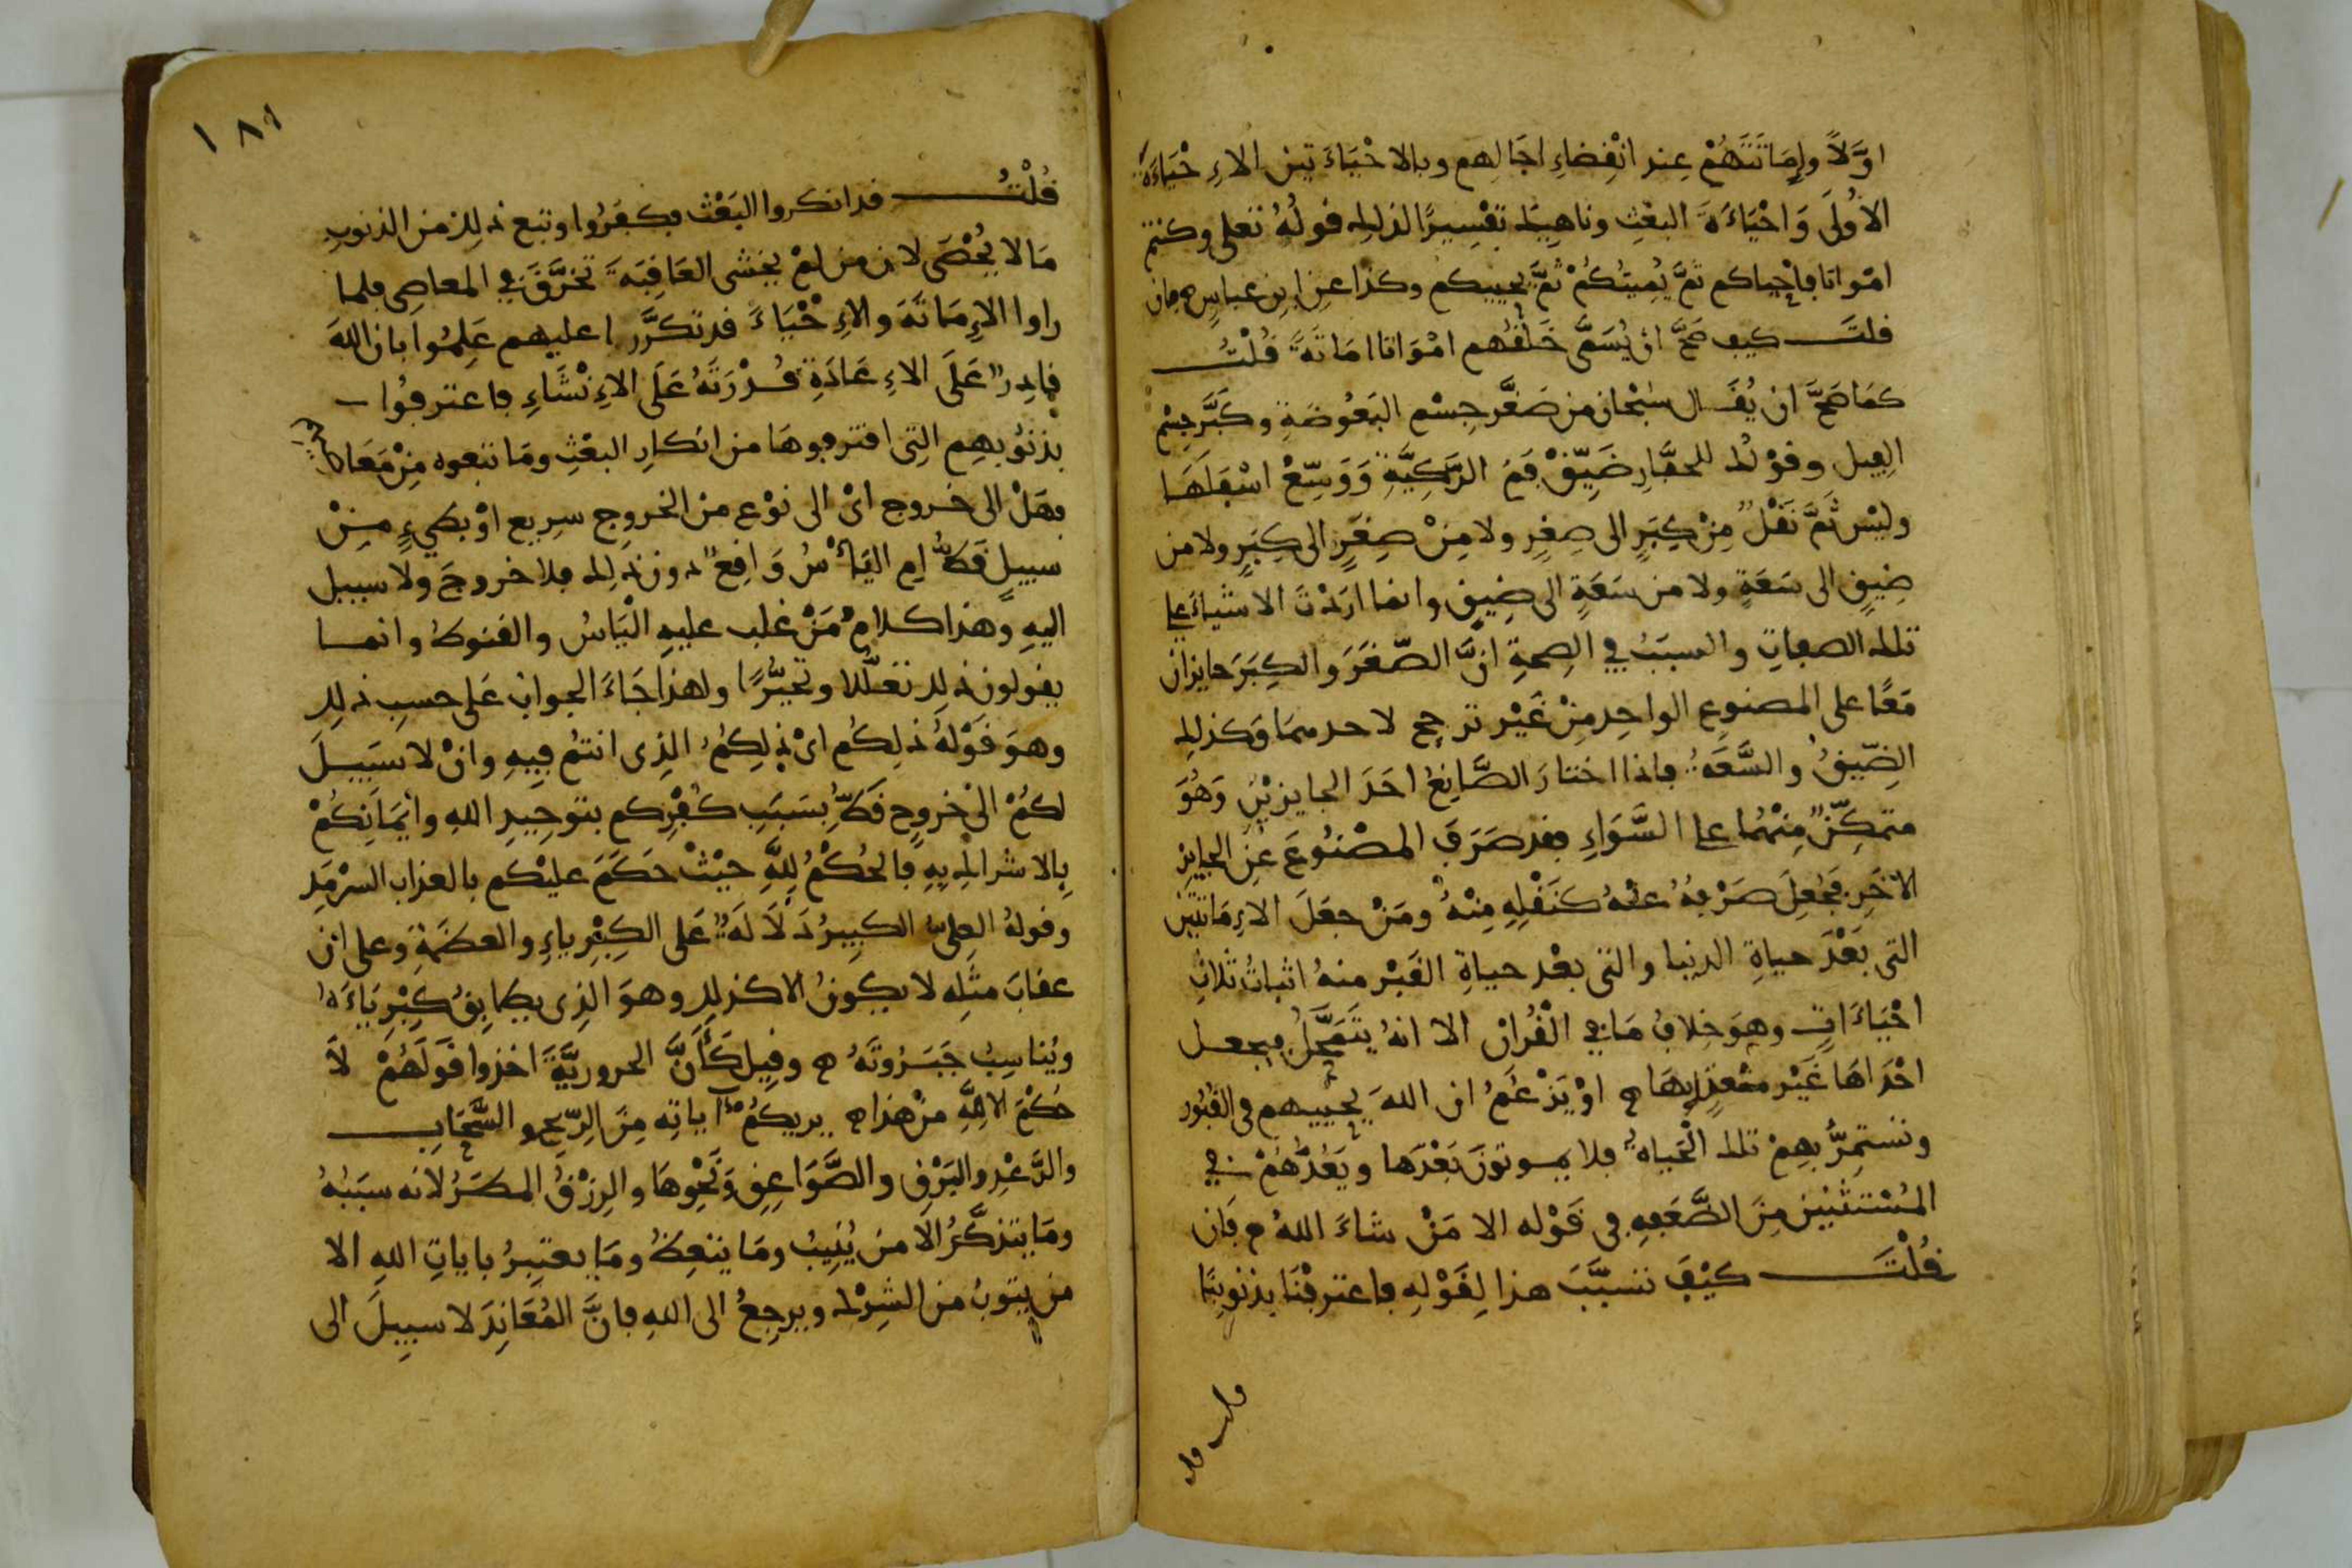 اوّلاً وإماتَتَهُمْ عِند انْقِضَاءِ اجَالهم وبالاحْيَاءَتين الاِحْيَاءَة
الأُولَى وَاحْيَاءَةَ البعْثِ وناهيك تفْسِيرًا لذلك قولُهُ تعلى وكنتم
امْواتا فاحْياكم ثمَّ يُمِيتُكُمْ ثمَّ يحييكم وكذا عن ابن عباس فان
قلتَ كيف صَحَّ انْ يُسَمَّى خَلْقُهم امْوَاتا امَاتَةً قُلْتُ
كمَا صَحَّ ان يُقَال سُبْحَان من صَغَّر جِسْم البَعُوضَةِ وكَبَّر جِسْم
الفِيل وقوْلك للحفَّارِ ضَيِّقْ فَمَ الرَّكِيَّةِ وَوَسِّعْ اسْفَلَهَا
وليْس ثَمَّ نَقْلٌ مِنْ كِبَرٍ الى صِغَرٍ ولا مِنْ صِغَرٍ الى كِبَرٍ ولا من
ضِيقٍ الى سَعَةٍ ولا من سَعَةٍ الى ضِيقٍ وانما ارَدْتَ الانشاءَ على
تلك الصفاتِ والسبَبُ في الصِحةِ انَّ الصِّغَرَ والكِبَرَ جايزان
مَعًا على المصنوعِ الواحِدِ مِنْ غَيْر ترجيح لاحدهمَا وَكذلك
الضِّيقُ والسَّعَةُ فاذا اختارَ الصَّانِعُ احَدَ الجايزيْنِ وَهُوَ
متمكِّنٌ مِنْهُما على السَّوَاءِ فقد صَرَفَ المصْنُوعَ عَنِ الجايِز
الآخَرِ فَجُعِلَ صَرْفهُ عنْهُ كنَقْلِهِ مِنْهُ ومَنْ جعَلَ الاِمَاتَتَيْن
التى بَعْدَ حياةِ الدنيا والتى بعْد حياةِ القَبْر منهُ اثباتُ ثلاثِ
احْيَاءَاتٍ وهوَ خِلافُ مَا في الْقُرانِ الا انهُ يتَمَحَّلُ فيجعل
احْدَاهَا غَيْر معْتدٍّ بهَا اوْ يَزْعُمُ ان اللهَ يحييهم فى القبُور
وتستَمِرُّ بهِمْ تلك الْحَياة فلا يموتونَ بَعْدَها ويَعُدُّهُمْ في
المُسْتثنَيْن مِنَ الصَّعْقهِ فى قَوْله الا مَنْ شاءَ اللهُ فَان
قُلْتَ كيْفَ تسبَّبَ هذا لِقَوْلِهِ فاعترفْنَا بذنوبِنَا
١٨١
قُلْتُ قد انكروا البَعْث فكفَرُوا وتبع ذلك من الذنوبِ
مَا لا يُحْصَى لان من لمْ يخشى العَاقِبَةَ تخرَّقَ في المعاصِى فلما
راوا الاِمَاتةَ والاِحْيَاءَ قد تكرَّرا عليهم عَلِمُوا بان اللهَ
قادِرٌ عَلَى الاِعَادَةِ قُدْرَتَهُ عَلَى الاِنْشَاءِ فاعترفُوا
بذنُوبِهِم التِى اقترفوهَا من انكارِ البعْثِ ومَا تبعوه مِنْ مَعَاصيهم
فهَلْ الى خروج اىْ الى نوْع من الخروج سرِيع اوْ بطيءٍ مِنْ
سبيلٍ قَطُّ امِ اليَأْسُ وَاقِعٌ دون ذلك فلا خروجَ ولا سبيل
اليهِ وَهذا كلامُ مَنْ غلب عليهِ الْيَاسُ والقنوطُ وانما
يقولون ذلك تعلُّلا وتحيُّرًا ولهذا جَاءَ الجوابُ عَلى حسبِ ذلك
وهوَ قَوْلهُ ذلِكُم اىْ ذلِكُمُ الذِى انتمْ فِيهِ وانْ لا سَبِيلَ
لكُمْ الى خروجٍ قَطُّ بسَبَبِ كُفْرِكم بتوْحِيدِ اللهِ وايْمَانِكُمْ
بِالاشراك بِهِ فالحُكْمُ لِلَّهِ حيْثُ حَكَمَ عليْكم بالعذاب السرْمَدِ
وقولهُ العلِىّ الكبِيرُ دَلالَةٌ عَلى الكِبْرِياءِ والعظمَةِ وعلى ان
عقابَ مثلِه لا يكونُ الا كذلك وهوَ الذِى يطابِقُ كِبْرِيَاءَهُ
ويُناسِبُ جَبَرُوتَهُ وقِيل كَأَنَّ الحروريَّةَ اخذوا قَوْلَهُمْ لاَ
حُكْمَ الا للَّهِ منْ هذا يريكُمُ آياتِه مِنَ الرِّيحِ والسَّحَابِ
والرَّعْدِ والبَرْقِ والصَّوَاعِقِ وَنَحْوِهَا والرِزْقُ المطَرُ لانه سبَبُهُ
ومَا يتذكَّرُ الا من يُنِيبُ ومَا يتعِظُ ومَا يعتبِرُ باياتِ اللهِ الا
من يتوبُ من الشِرْك ويرجِعُ الى اللهِ فانَّ المُعَانِدَ لا سبِيلَ الى